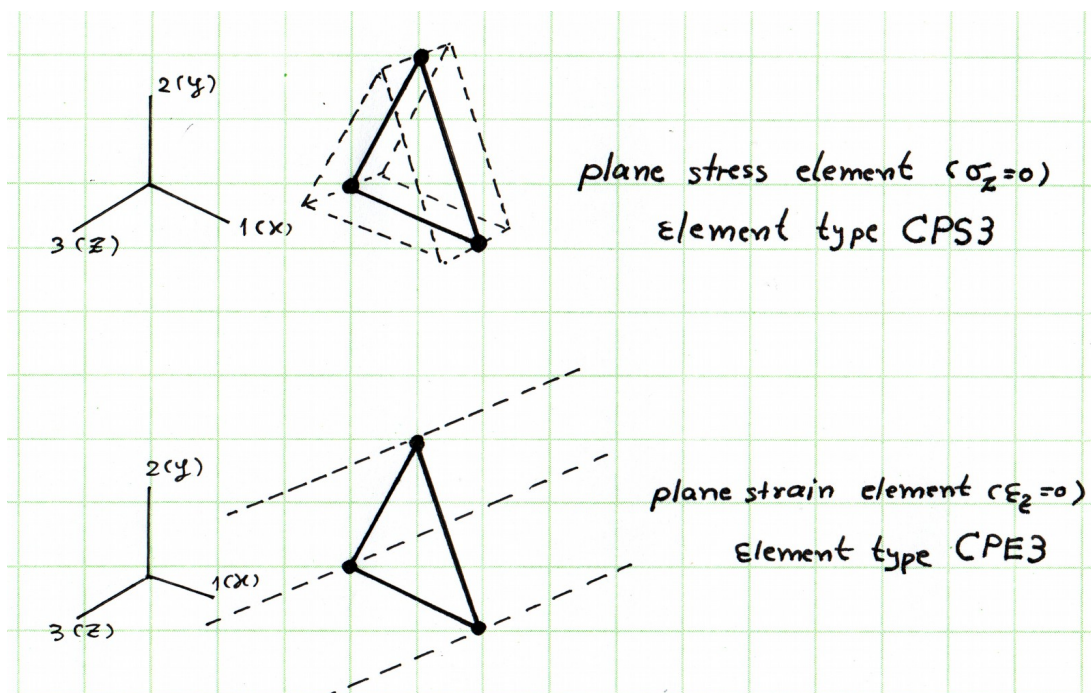 2(y)
3(z)
1(x)
plane stress element (σz=0)
Element type CPS3
2(y)
3(z)
1(x)
plane strain element (εz=0)
Element type CPE3